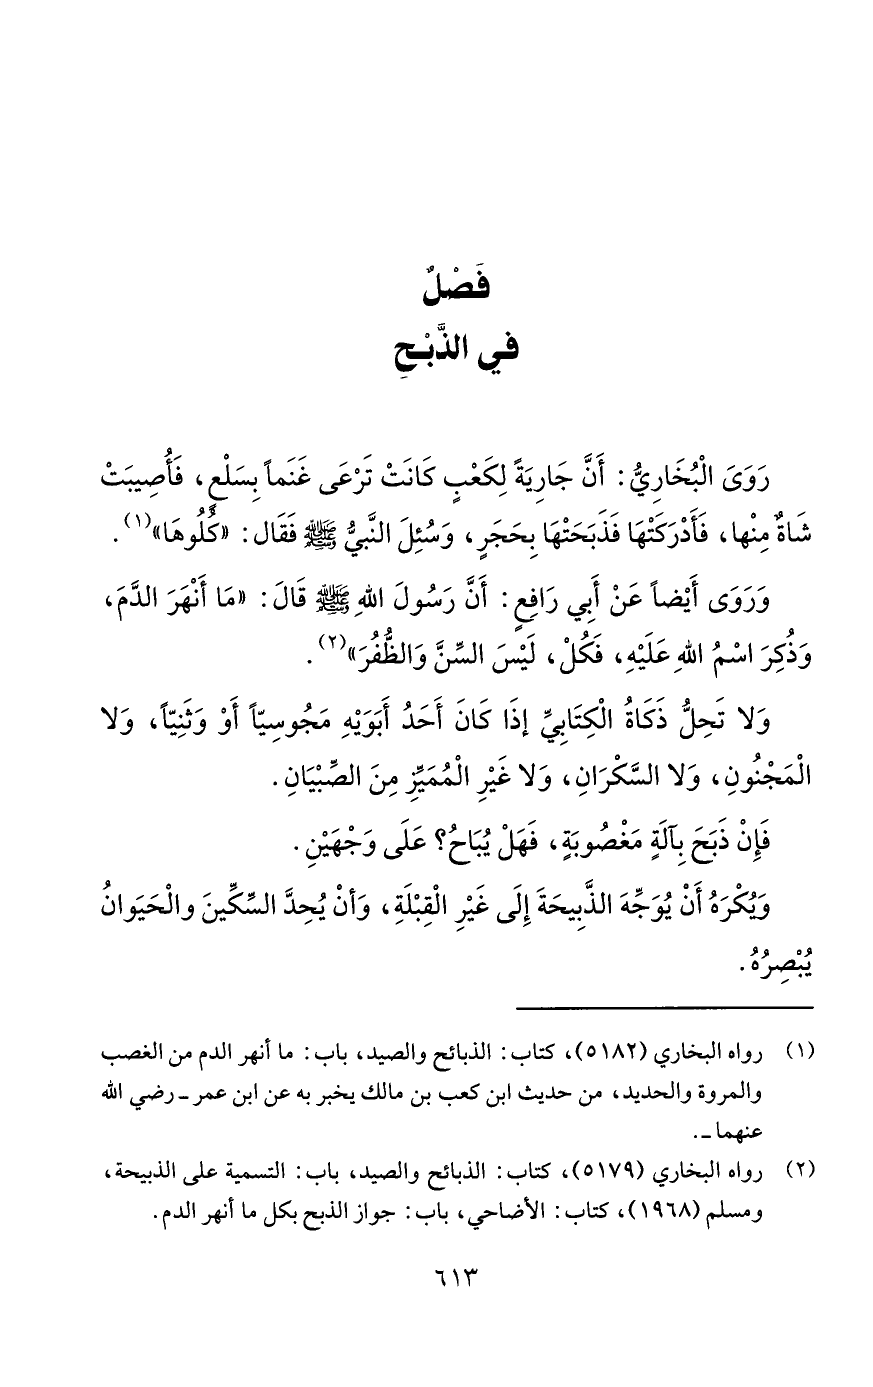 فَصْلٌ
في الذَّبْحِ
رَوَىَ الْبُخَارِيُّ: أَنَّ جَارِيَةً لِكَعْبٍ كَانَتْ تَرْعَى غَنَماً بِسَلْعٍ، فَأُصِيبَتْ
شَاةٌ مِنْها، فَأَدْرَكَتْهَا فَذَبَحَتْهَا بِحَجَرٍ، وَسُئِلَ النَّبيُّ ﷺ فَقَال: «كُلُوهَا»(١).
وَرَوَى أَيْضاً عَنْ أَبِي رَافِعٍ: أَنَّ رَسُولَ اللهِ ﷺ قَالَ: «مَا أَنْهَرَ الدَّمَ،
وَذُكِرَ اسْمُ اللهِ عَلَيْهِ، فَكُلْ، لَيْسَ السِّنَّ وَالظُّفُرَ»(٢).
وَلا تَحِلُّ ذَكَاةُ الْكِتَابِيِّ إذَا كَانَ أَحَدُ أَبَوَيْهِ مَجُوسِيّاً أَوْ وَثَنِيّاً، وَلا
الْمَجْنُونِ، وَلا السَّكْرَانِ، وَلا غَيْرِ الْمُمَيِّزِ مِنَ الصِّبْيَانِ.
فَإِنْ ذَبَحَ بِآلَةٍ مَغْصُوبَةٍ، فَهَلْ يُبَاحُ؟ عَلَى وَجْهَيْنِ.
وَيُكْرَهُ أَنْ يُوَجِّهَ الذَّبِيحَةَ إِلَى غَيْرِ الْقِبْلَةِ، وَأنْ يُحِدَّ السِّكِّينَ والْحَيَوانُ
يُبْصِرُهُ.
(١) رواه البخاري (٥١٨٢)، كتاب: الذبائح والصيد، باب: ما أنهر الدم من الغصب
والمروة والحديد، من حديث ابن كعب بن مالك يخبر به عن ابن عمر ـ رضي الله
عنهما ـ.
(٢) رواه البخاري (٥١٧٩)، كتاب: الذبائح والصيد، باب: التسمية على الذبيحة،
ومسلم (١٩٦٨)، كتاب: الأضاحي، باب: جواز الذبح بكل ما أنهر الدم.
٦١٣